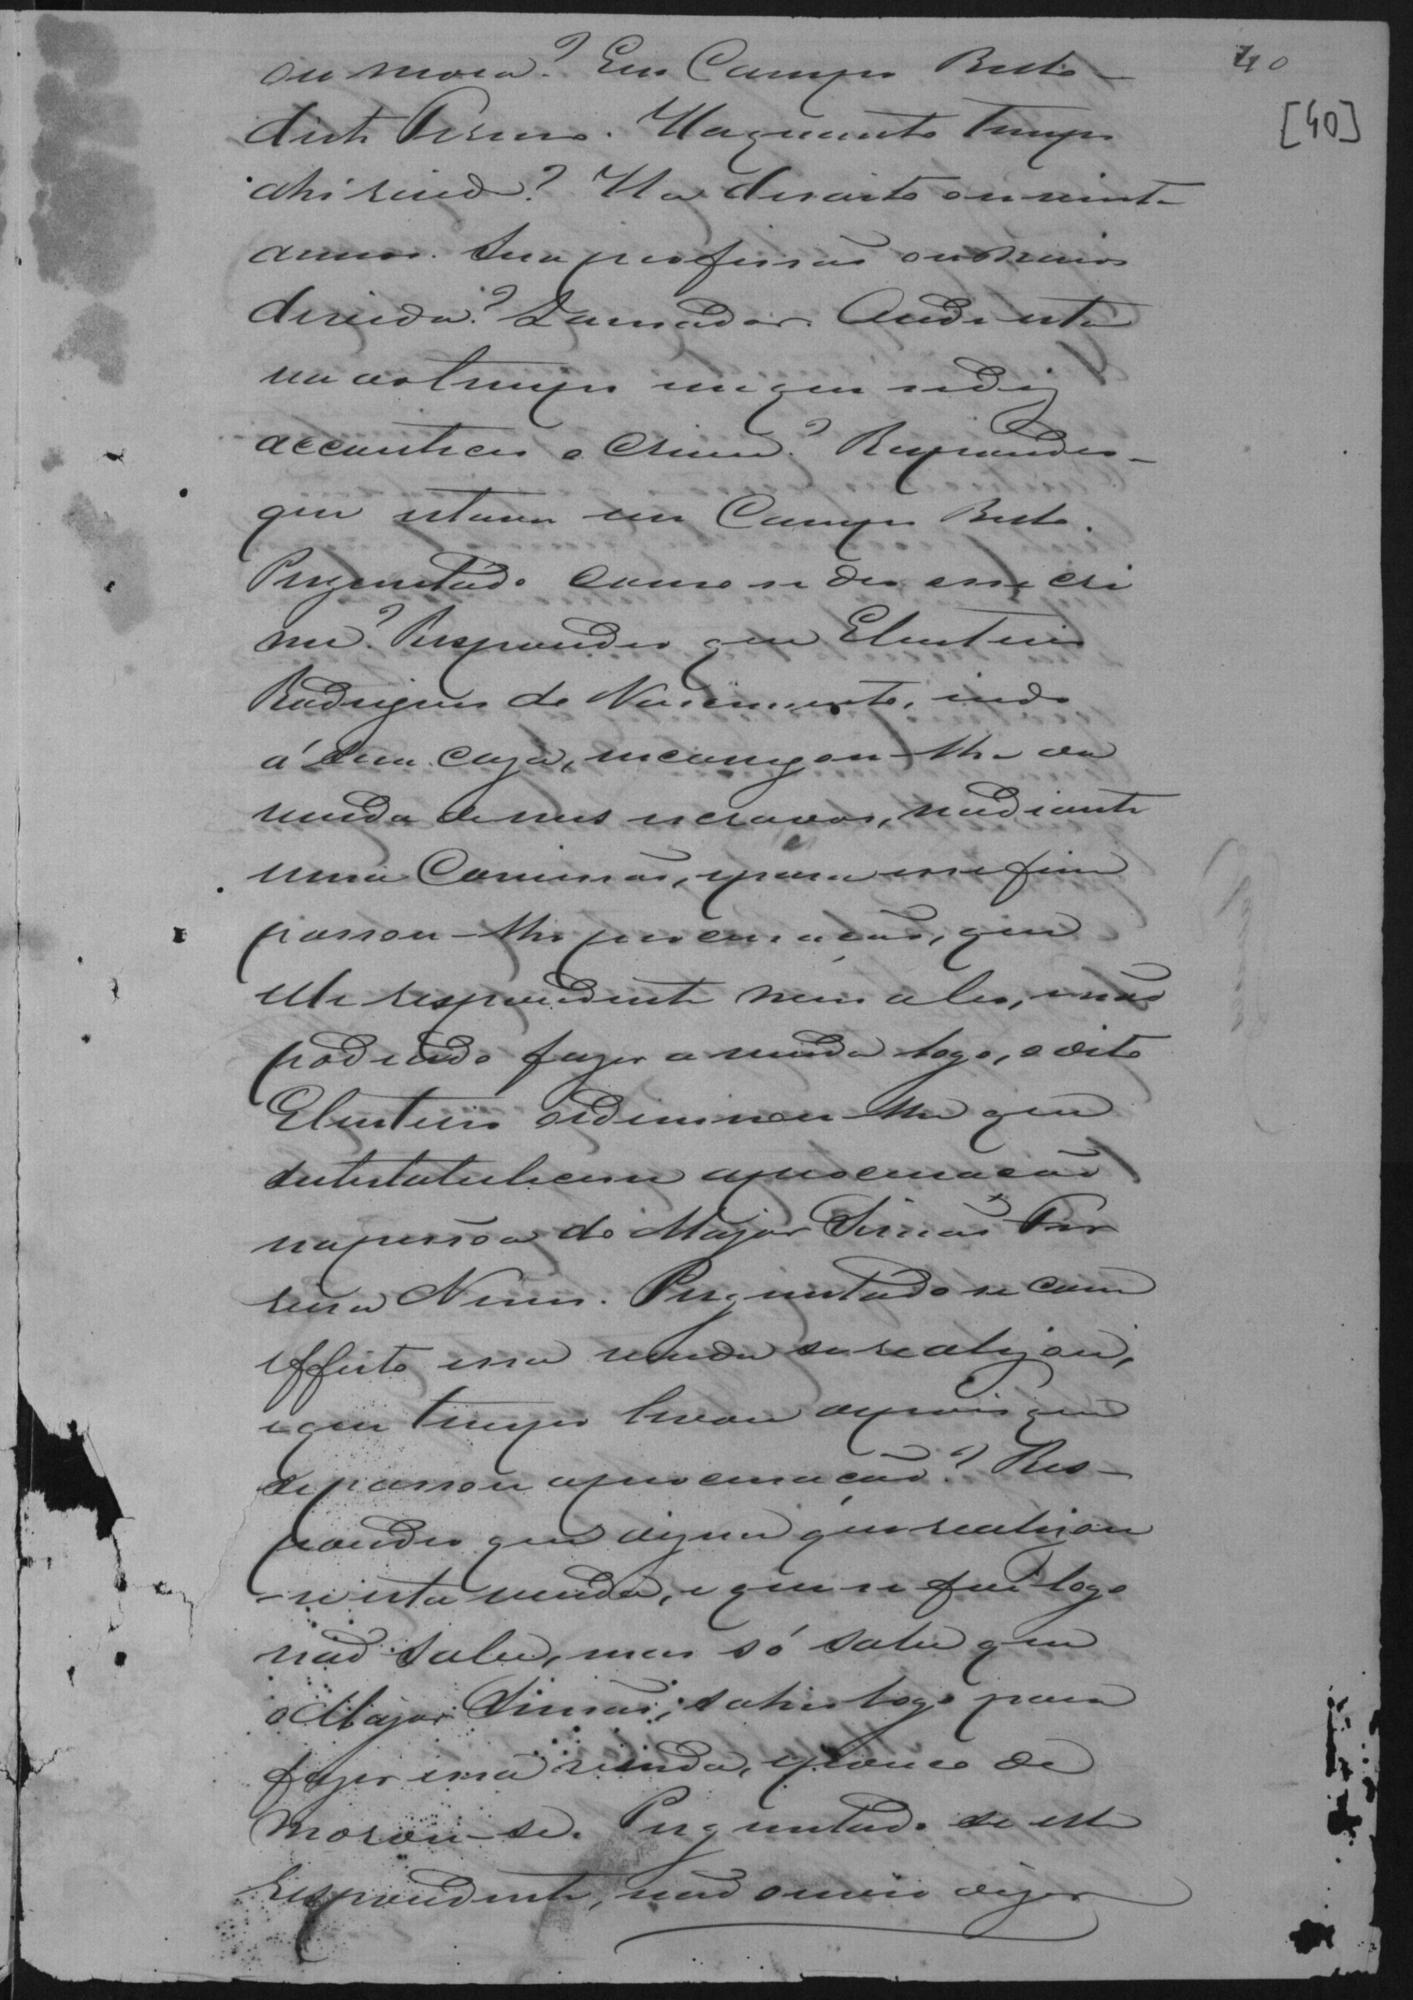 40
[40]
ou mora? Em Campo Bello
deste Termo. Ha quanto tempo
ahi reside? Ha desoito ou vinte
annos. Sua profissão ou meios
de vida? Lavrador. Onde estava
na ao tempo em que se diz
acconteceo o crime? Respondeo
que estava em Campo Bello.
Perguntado como se deo esse cri
me? Respondeo que Eleuterio
Rodrigues do Nascimento, indo
á sua caza, encarregou-lhe da
venda de seus escravos, mediante
uma Comissão, e para esse fim
passou-lhe procuração, que
elle respondente veio a ler, e não
podendo fazer a venda logo, o dito
Eleuterio ordenou-lhe que
substabelecesse a procuração
na pessoa do Major Simão Per
reira Nunes. Perguntado se com
effeito essa venda se realizou,
e que tempo levou depois que
se passou a procuração? Res-
pondeo que digo que realizou
-se esta venda, e que se foi logo
não sabe, mas só sabe que
o Major Simão, sahio logo para
fazer essa venda, e pouco de
morou-se. Perguntado se este
respondente, não ouvio dizer